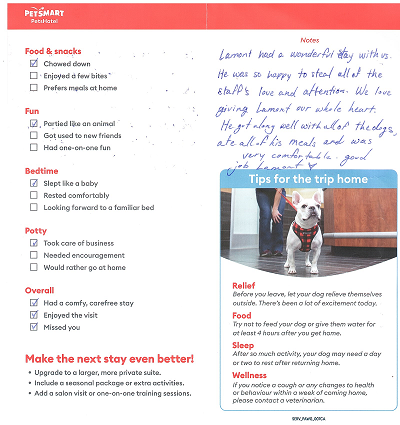 PETSMART
PetsHotel
Food & snacks
☑ Chowed down
☐ Enjoyed a few bites
☐ Prefers meals at home
Fun
☑ Partied like an animal
☐ Got used to new friends
☐ Had one-on-one fun
Bedtime
☑ Slept like a baby
☐ Rested comfortably
☐ Looking forward to a familiar bed
Potty
☑ Took care of business
☐ Needed encouragement
☐ Would rather go at home
Overall
☑ Had a comfy, carefree stay
☑ Enjoyed the visit
☑ Missed you
Make the next stay even better!
• Upgrade to a larger, more private suite.
• Include a seasonal package or extra activities.
• Add a salon visit or one-on-one training sessions.
Notes
Lamont had a wonderful stay with us.
He was so happy to steal all of the
staff's love and attention. We love
giving Lamont our whole heart.
He got along well with all of the dogs,
ate all of his meals and was
very comfortable. good
job Lamont
Tips for the trip home
Relief
Before you leave, let your dog relieve themselves
outside. There's been a lot of excitement today.
Food
Try not to feed your dog or give them water for
at least 4 hours after you get home.
Sleep
After so much activity, your dog may need a day
or two to rest after returning home.
Wellness
If you notice a cough or any changes to health
or behaviour within a week of coming home,
please contact a veterinarian.